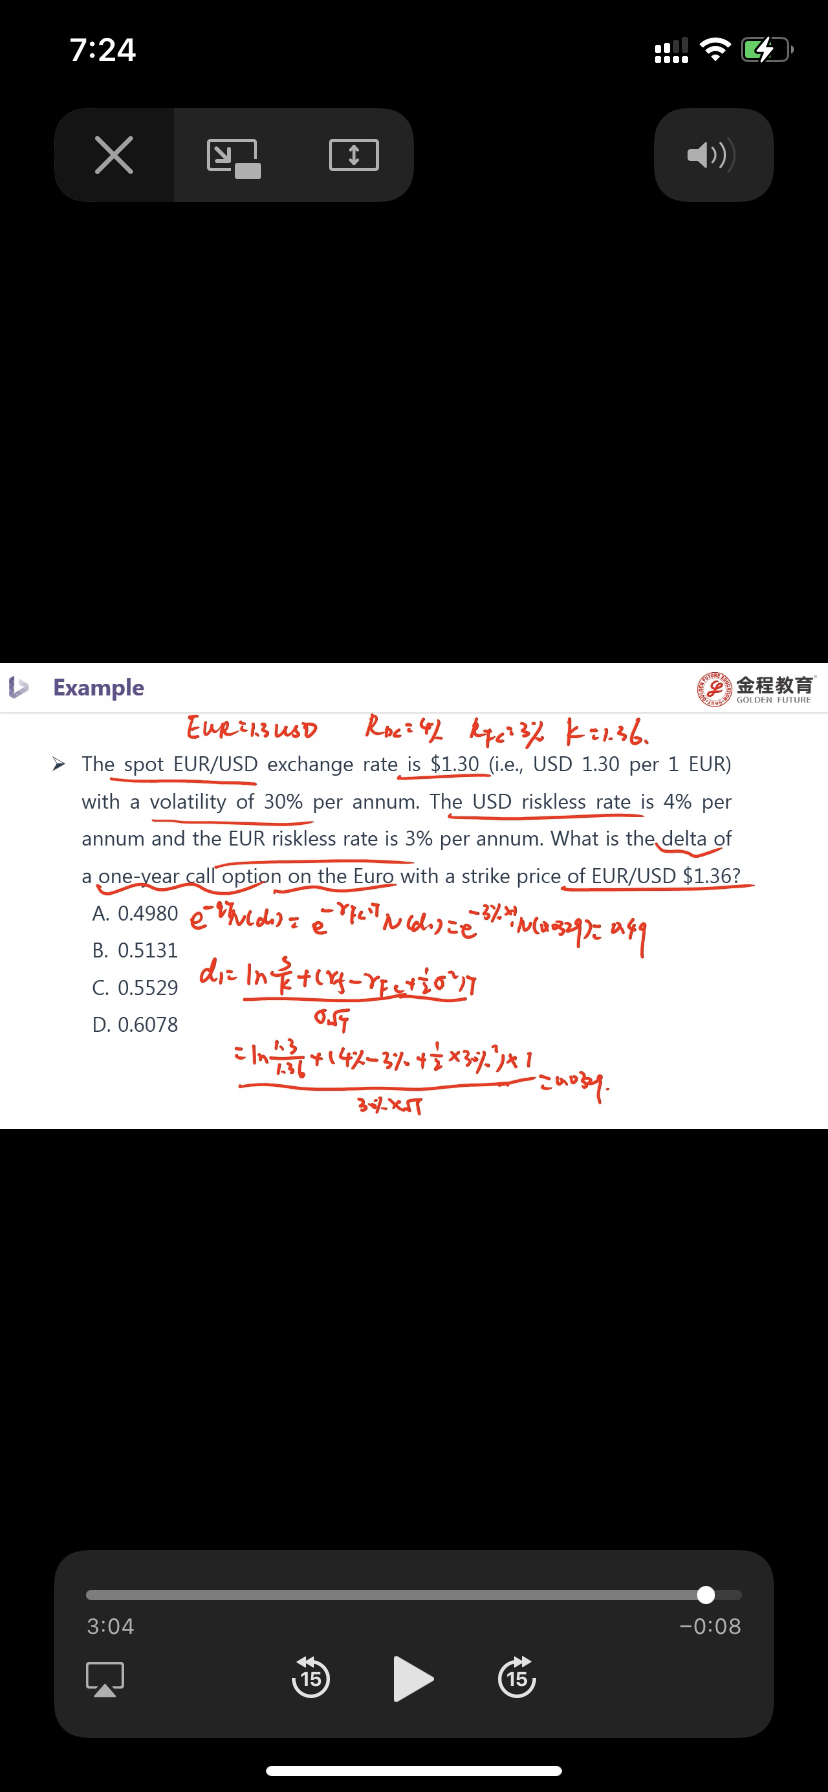 7:24
Example
金程教育
GOLDEN FUTURE
EUR=1.3USD R_DC=4% R_FC=3% K=1.36.
➢ The spot EUR/USD exchange rate is $1.30 (i.e., USD 1.30 per 1 EUR)
with a volatility of 30% per annum. The USD riskless rate is 4% per
annum and the EUR riskless rate is 3% per annum. What is the delta of
a one-year call option on the Euro with a strike price of EUR/USD $1.36?
A. 0.4980 e^-qT N(d1) = e^-r_FC·T N(d1) = e^-3%×1·N(0.0329) = 0.49
B. 0.5131
C. 0.5529 d1= ln S/K + (rf - r_FC + 1/2 σ²)T
D. 0.6078 σ√T
= ln 1.3/1.36 + (4% - 3% + 1/2 × 30%²) × 1 = 0.0329.
30% × √1
3:04
−0:08
15
15